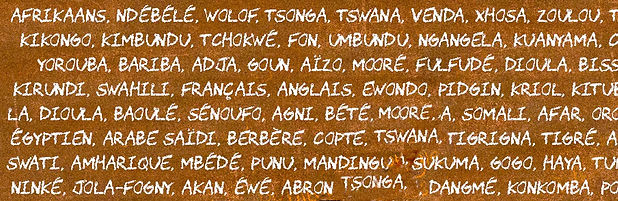 AFRIKAANS, NDÉBÉLÉ, WOLOF, TSONGA, TSWANA, VENDA, XHOSA, ZOULOU, T
KIKONGO, KIMBUNDU, TCHOKWÉ, FON, UMBUNDU, NGANGELA, KUANYAMA, C
YOROUBA, BARIBA, ADJA, GOUN, AÏZO, MOORÉ, FULFUDÉ, DIOULA, BISS
KIRUNDI, SWAHILI, FRANÇAIS, ANGLAIS, EWONDO, PIDGIN, KRIOL, KITUB
LA, DIOULA, BAOULÉ, SÉNOUFO, AGNI, BÉTÉ, MOORÉ, A, SOMALI, AFAR, ORO
ÉGYPTIEN, ARABE SAÏDI, BERBÈRE, COPTE, TSWANA, TIGRIGNA, TIGRÉ, A
SWATI, AMHARIQUE, MBÉDÉ, PUNU, MANDINGU SUKUMA, GOGO, HAYA, TU
NINKÉ, JOLA-FOGNY, AKAN, ÉWÉ, ABRON TSONGA, , DANGMÉ, KONKOMBA, PO